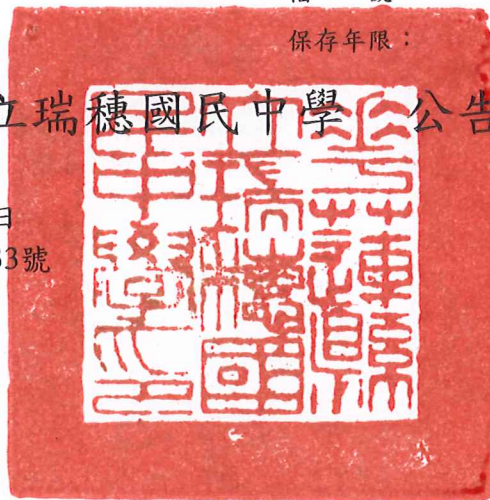 保存年限：
立瑞穗國民中學 公告
日
33號
花蓮縣
立瑞穗國
民中學印